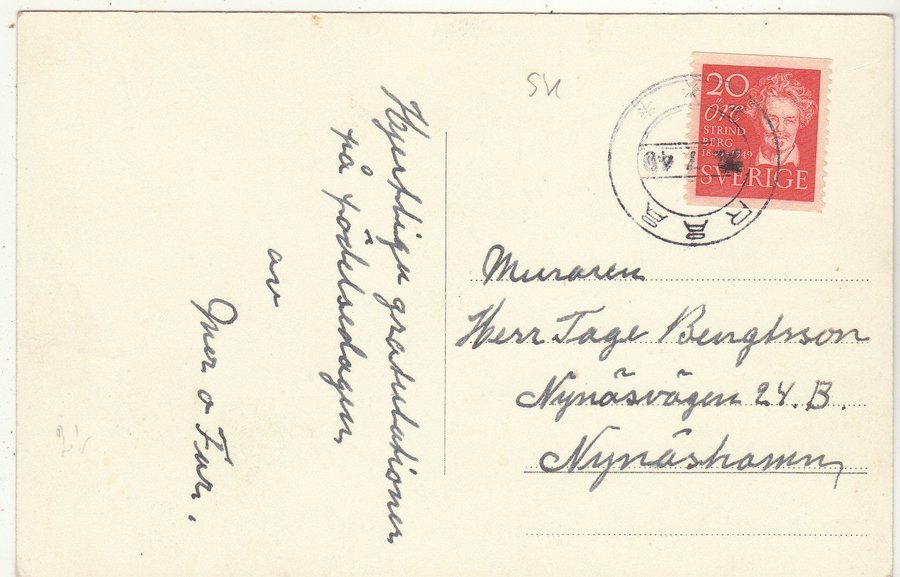 Hjertliga gratulationer,
på födelsedagen,
av
Mor o Far.
20
öre
STRIND
BERG
SVERIGE
RÅÅ
Muraren
Herr Tage Bengtsson
Nynäsvägen 24. B.
Nynäshamn,